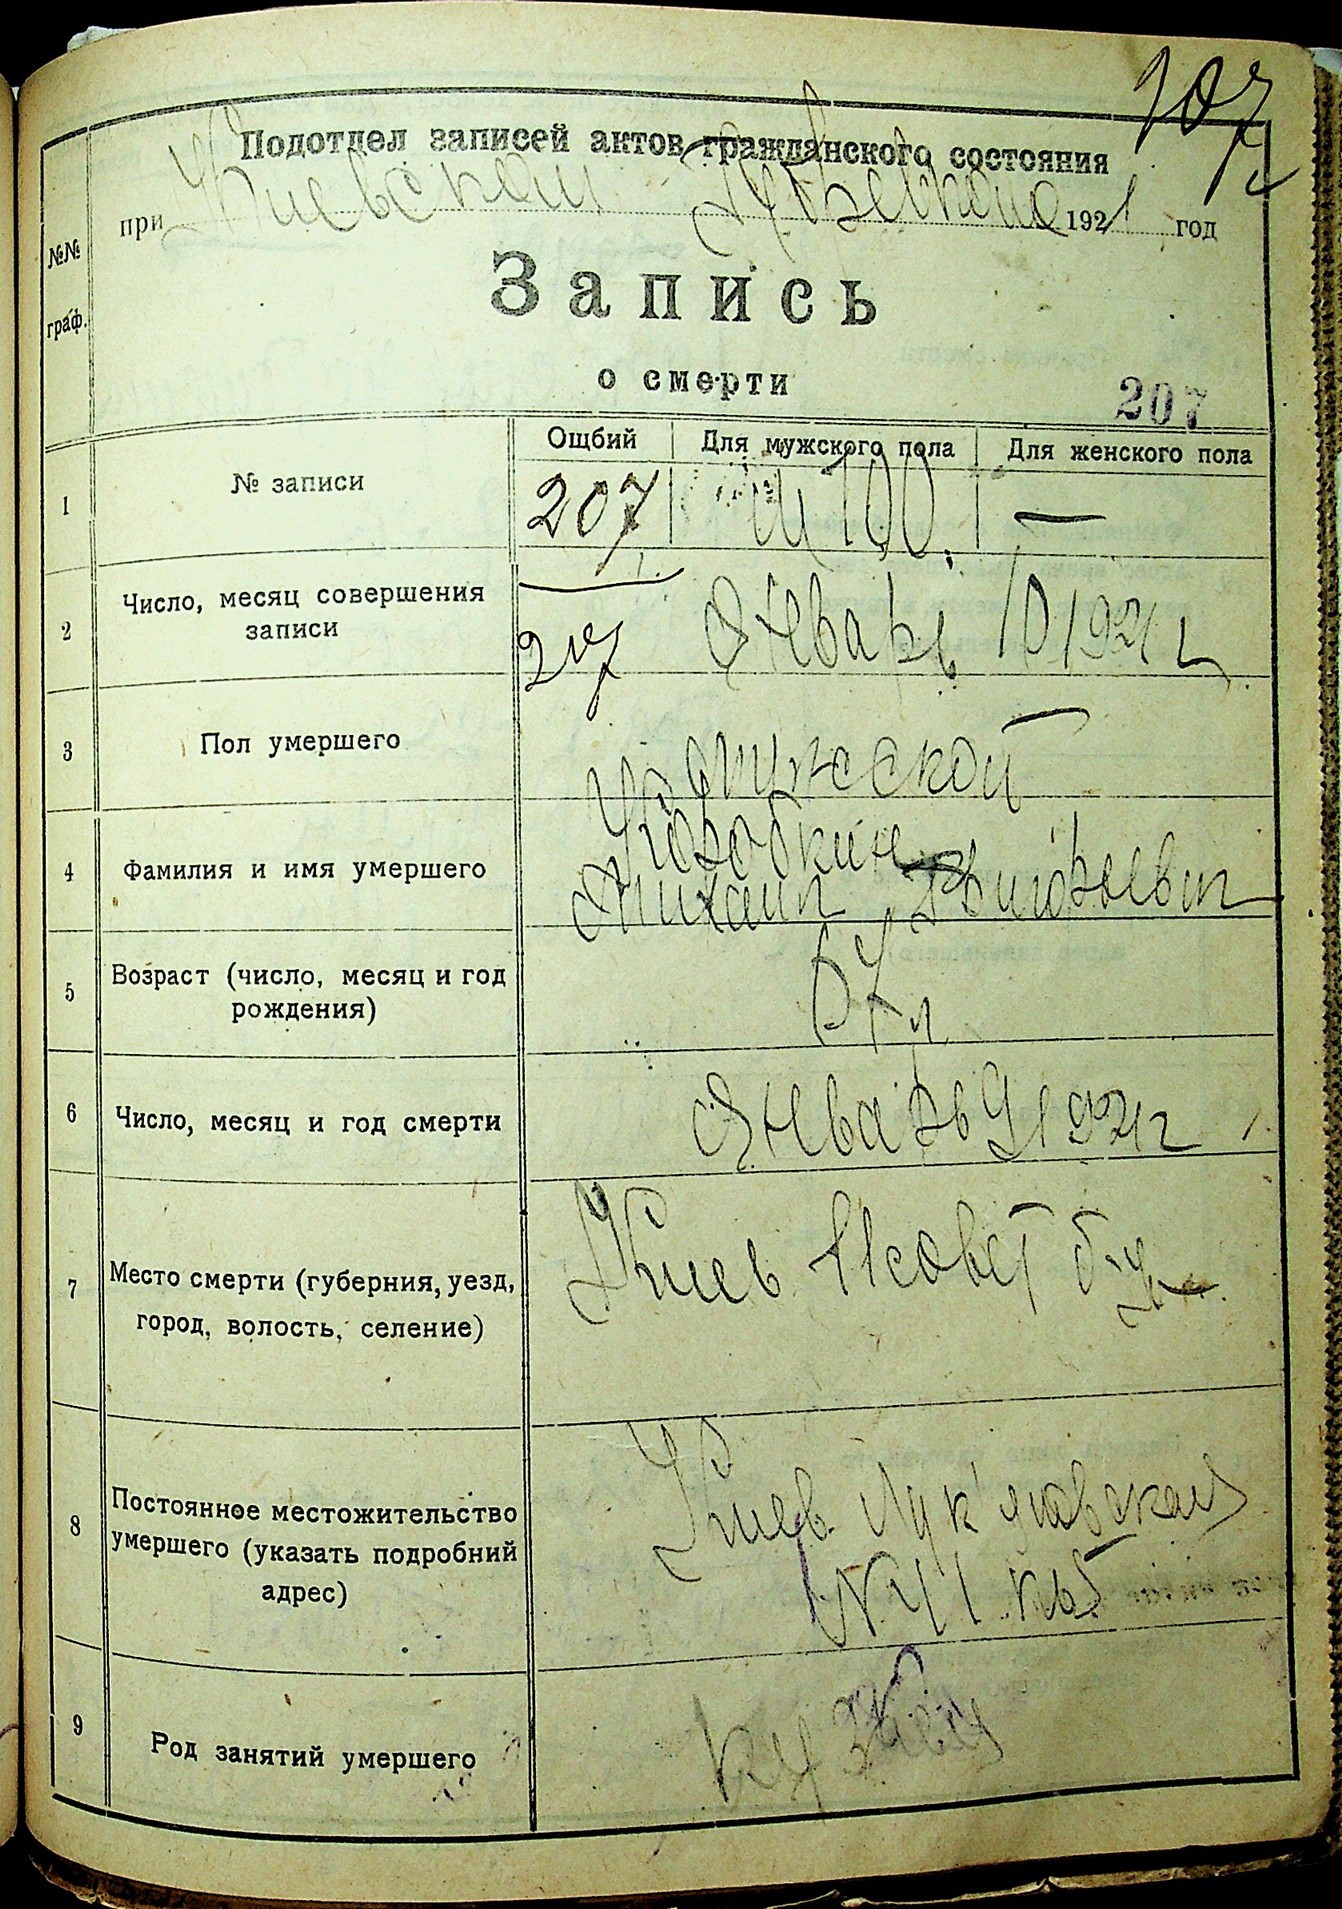 207
Подотдел записей актов гражданского состояния
при Киевском 1921 год
Запись
о смерти
207
№№ граф.
Ощбий Для мужского пола Для женского пола
1 № записи 207 м 100. —
2 Число, месяц совершения
записи
217 Январь 10 1921 г
3 Пол умершего мужской
4 Фамилия и имя умершего
Коробкин
Михаил Григорьевич
5 Возраст (число, месяц и год
рождения)
67 л
6 Число, месяц и год смерти Январь 9 1921 г
7 Место смерти (губерния, уезд,
город, волость, селение)
Киев
8 Постоянное местожительство
умершего (указать подробний
адрес)
Киев Лукяновская
N 41 кв
9 Род занятий умершего